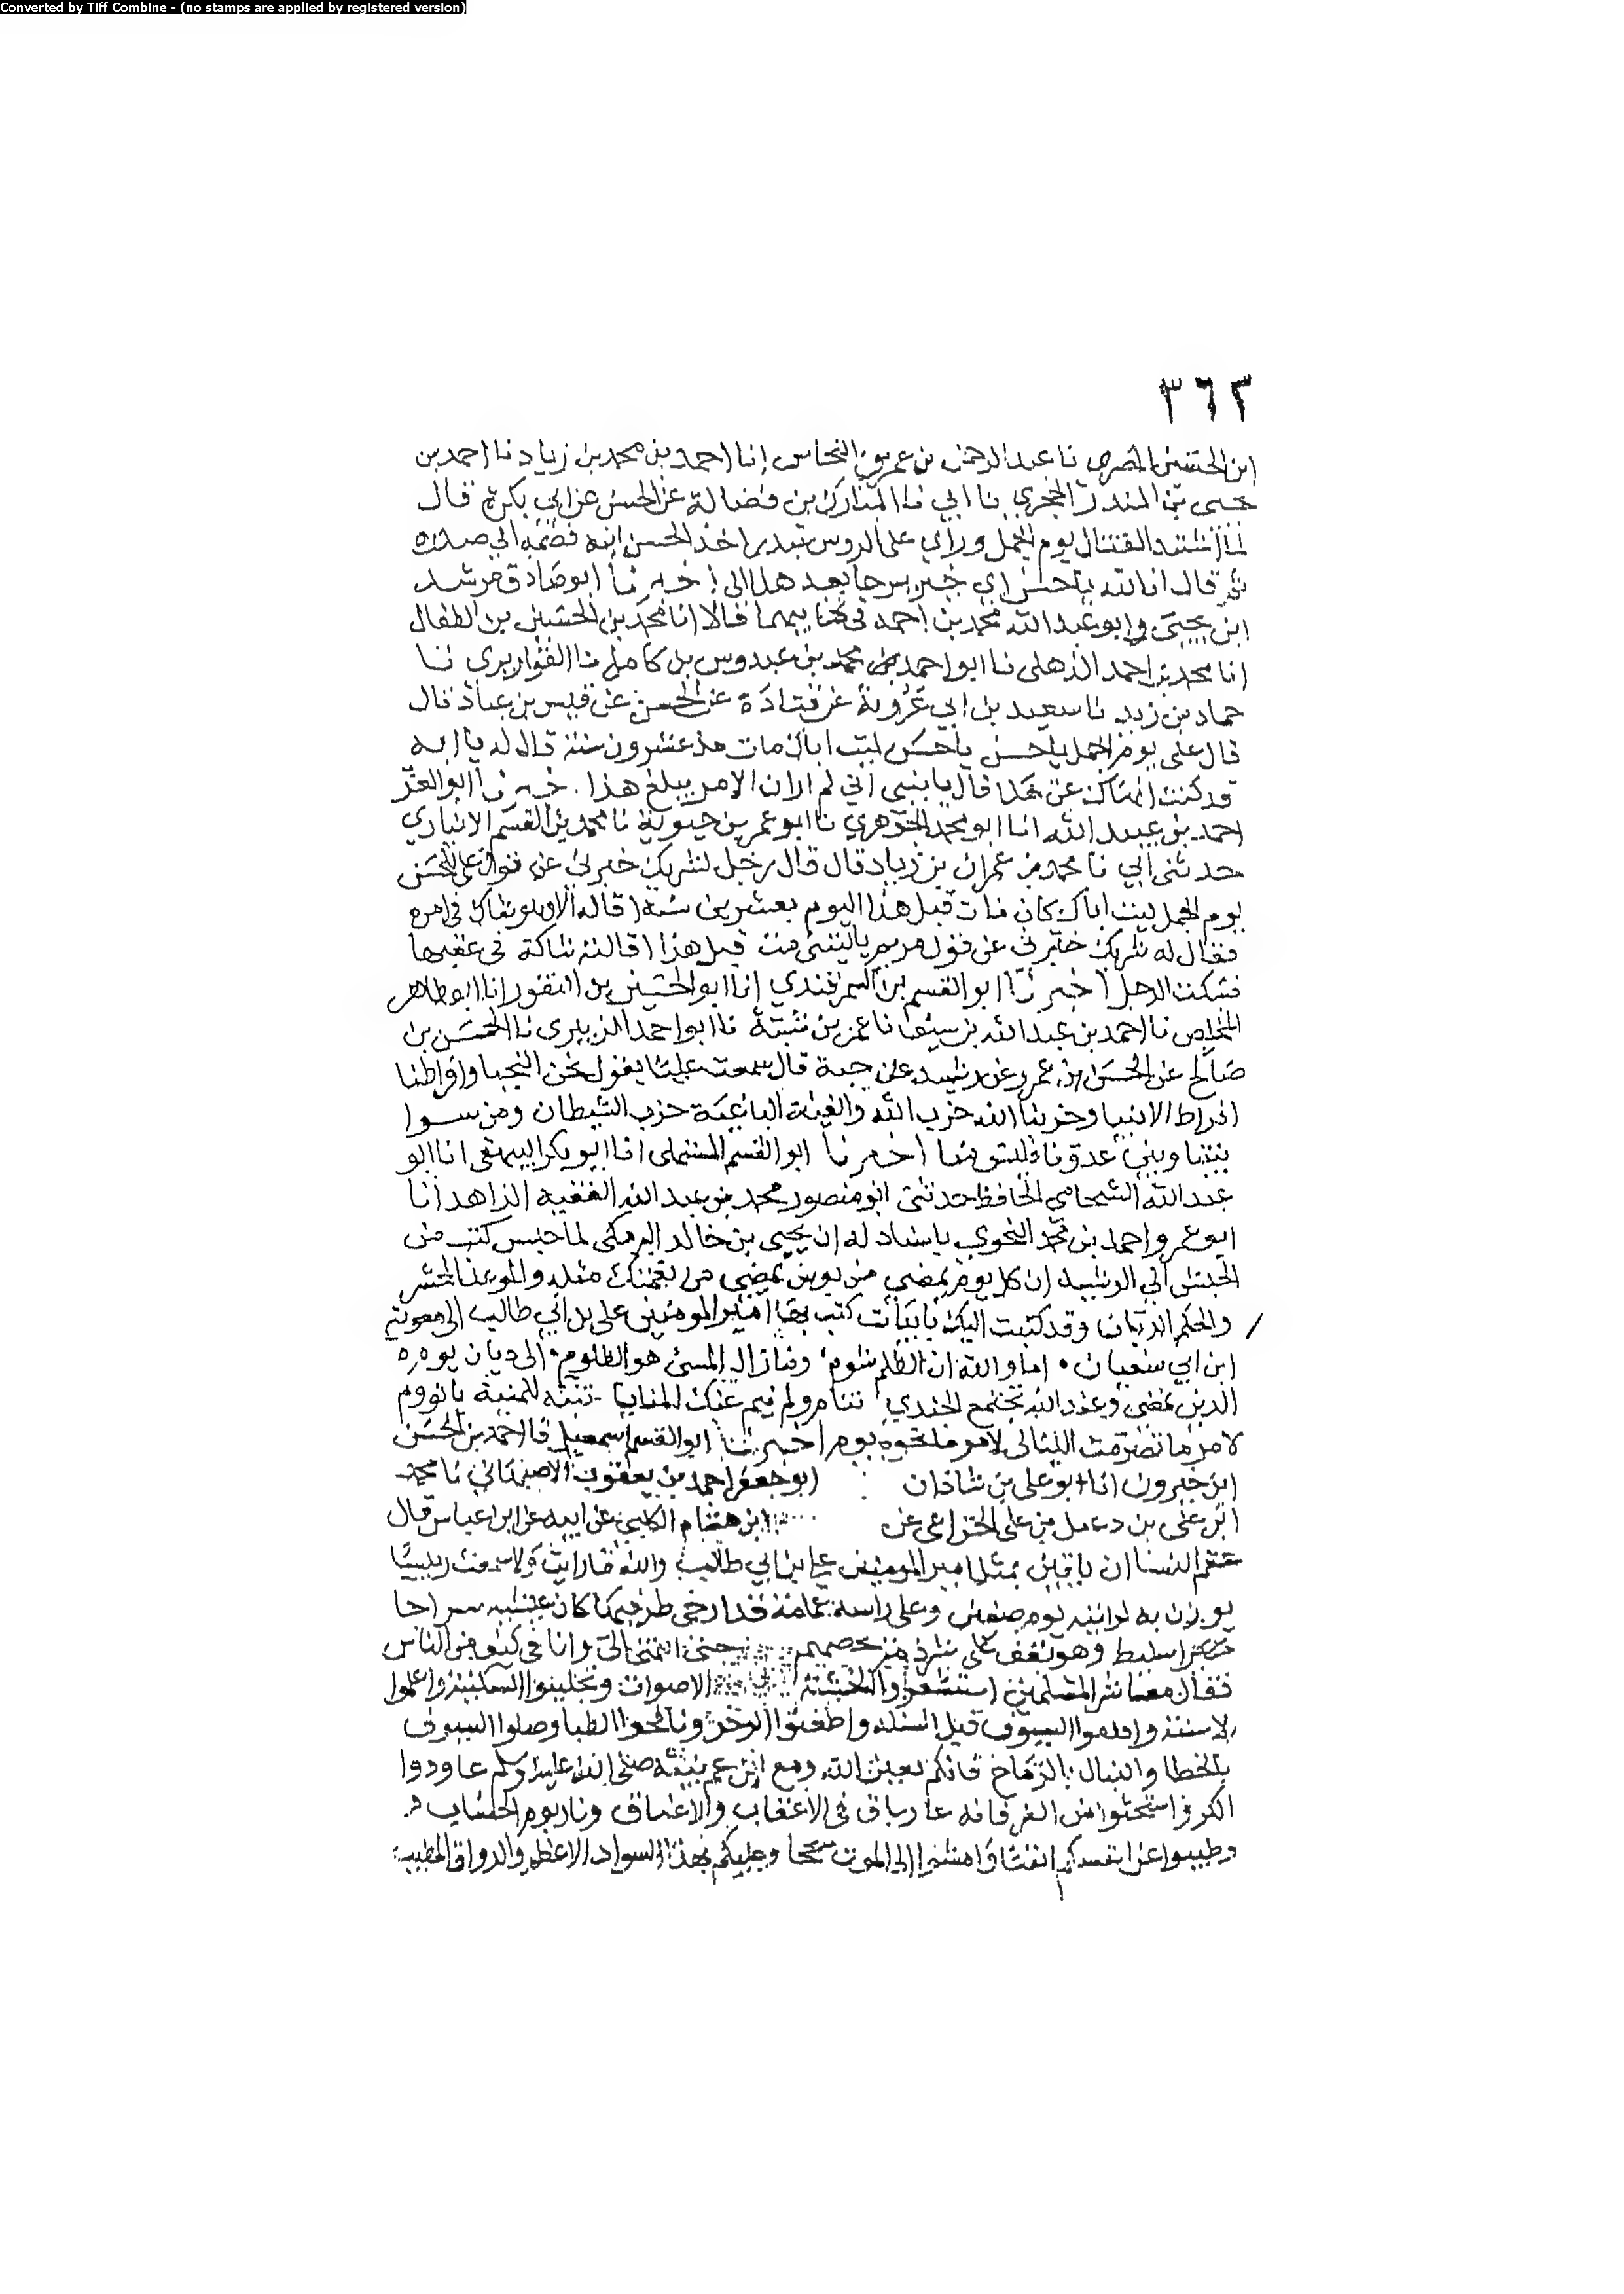 Converted by Tiff Combine - (no stamps are applied by registered version)
٣٦٢
ابن الحسين المصري نا عبد الرحمن بن عمر بن النحاس انا احمد بن محمد بن زياد نا احمد بن
يحيى بن المنذر الحجري نا ابي نا المبارك بن فضالة عن الحسن عن ابي بكرة قال
لما اشتد القتال يوم الجمل وراى على الروس تبدر اخذ الحسن ابنه فضمه الى صدره
ثم قال انا لله يا حسن اي خير يرجا بعد هذا الى اخبرنا ابو صادق مرشد
ابن يحيى وابو عبد الله محمد بن احمد في كتابيهما قالا انا محمد بن الحسين بن الطفال
انا محمد بن احمد الذهلى نا ابو احمد بن محمد بن عبدوس بن كامل نا القواريري نا
حماد بن زيد نا سعيد بن ابي عروبة عن قتادة عن الحسن عن قيس بن عباد قال
قال على يوم الجمل يا حسن يا حسن ليت اباك مات مذ عشرون سنة قال له يا ابه
قد كنت انهاك عن هذا قال يا بني اني لم ار ان الامر يبلغ هذا . خبرنا ابو العز
احمد بن عبيد الله انا ابو محمد الجوهري نا ابو عمر بن حيوية نا محمد بن القسم الانباري
حدثنى ابي نا محمد بن عمران بن زياد قال قال رجل لشريك خبرني عن قول على للحسن
يوم الجمل ليت اباك كان مات قبل هذا اليوم بعشرين سنة اقاله الا وهو شاك في امره
فقال له شريك خبرني عن قول مريم يا ليتني مت قبل هذا اقالته شاكة في عفتها
فسكت الرجل اخبرنا ابو القسم بن السمرقندي انا ابو الحسين بن النقور انا ابو طاهر
المخلص نا احمد بن عبد الله بن سيف نا عمر بن شبة نا ابو احمد الزبيرى نا الحسن بن
صالح عن الحسن بن عمرو عن رشيد عن حبة قال سمعت عليا يقول نحن النجبا وافراطنا
افراط الانبيا وحزبنا حزب الله والفئة الباغية حزب الشيطان ومن سوا
بيننا وبين عدونا فليس منا اخبرنا ابو القسم المستملى انا ابو بكر البيهقى انا ابو
عبد الله الحافظ حدثنى ابو منصور محمد بن عبد الله الفقيه الزاهد انا
ابو عمرو احمد بن محمد النحوي باسناد له ان يحيى بن خالد البرمكى لما حبس كتب من
الحبس الى الرشيد ان كل يوم يمضي من بوسي يمضي من نعمتك مثله والموعد المحشر
والحكم الديان وقد كتبت اليك بابيات كتب بها امير المومنين على بن ابي طالب الى معوية
ابن ابي سفيان • اما والله ان الظلم شوم وما زال المسئ هو الظلوم • الى ديان يوم
الدين نمضى وعند الله تجتمع الخصوم تنام ولم تنم عنك المنايا تنبه للمنية يا نووم
لامر ما تصرمت الليالى لامر ما تحوم اخبرنا ابو القسم اسمعيل نا احمد بن الحسن
ابن خيرون انا ابو على بن شاذان ابو جعفر احمد بن يعقوب الاصبهاني نا محمد
ابن على بن دعبل بن على الخزاعى عن ابن هشام الكلبي عن ابيه عن ابن عباس قال
عقم النسا ان ياتين بمثل امير المومنين على بن ابي طالب والله ما رايت ولا سمعت رييسا
يوزن به لرايته يوم صفين وعلى راسه عمامة قد ارخى طرفيها كان عينيه سراجا
سليط وهو يقف على شرذمة يحضهم حتى انتهى الي وانا في كنف من الناس
فقال معاشر المسلمين استشعروا الخشية الاصوات وتجلببوا السكينة واعملوا
الاسنة واقلقوا السيوف قبل السلة واطعنوا الرخر ونافحوا الظبا وصلوا السيوف
بالخطا والنبال بالرماح فانكم بعين الله ومع ابن عم نبيه صلى الله عليه وسلم عاودوا
الكر واستحيوا من الفر فانه عار باق فى الاعقاب والاعناق ونار يوم الحساب
وطيبوا عن انفسكم انفسا وامشوا الى الموت سجحا وعليكم بهذا السواد الاعظم والرواق المطنب